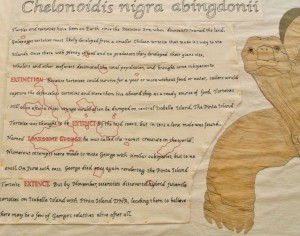 Chelonoidis nigra abingdonii
Turtles and tortoises have been on Earth since the Mesozoic Era, when dinosaurs roamed the land.
Galapagos tortoises most likely developed from a smaller Chilean tortoise that made its way to the
islands since there, with plenty of food and no predators they developed their giant size.
whalers and other seafarers decimated the local population, and brought some subspecies to
EXTINCTION. Because tortoises could survive for a year or more without food or water, sailors would
capture the defenseless tortoises and store them live aboard ship as a ready source of food. Tortoises
still alive after a ship's voyage would often be dumped on central Isabela Island. The Pinta Island
Tortoise was thought to be EXTINCT by the mid 1900s, but in 1971 a lone male was found.
Named LONESOME GEORGE he was called the rarest creature in the world.
Numerous attempts were made to mate George with similar subspecies, but to no
avail. On June 24th 2012, George died, once again rendering the Pinta Island
Tortoise EXTINCT. But by November, scientists discovered hybrid juvenile
tortoises on Isabela Island with Pinta Island DNA, leading them to believe
there may be a few of George's relatives alive after all.